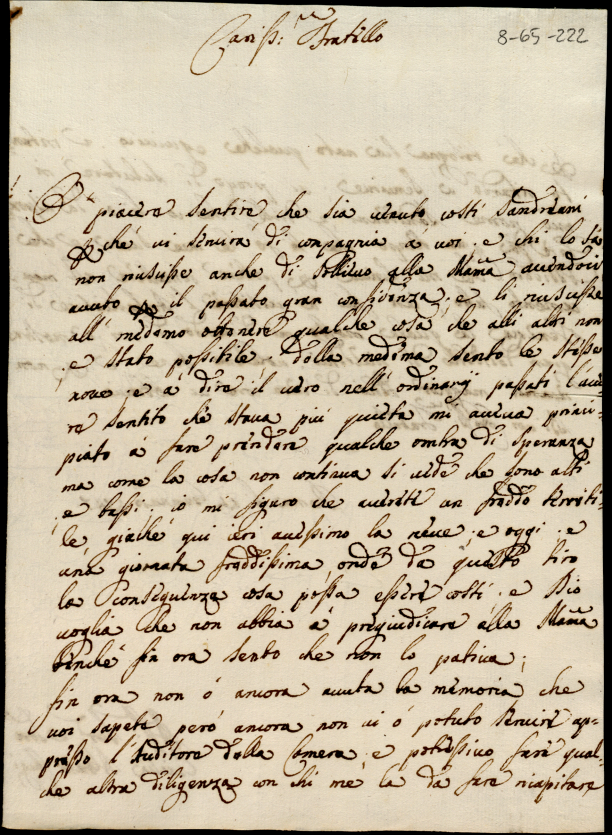 Cariss: mo Fratello
8-65-222
O piacere sentire che sia venuto costi Sandreani
p che vi servirà di compagnia à voi e chi lo sà
non riuscisse anche di sollievo alla Mamā avendoci
avuto p il passato gran confidenza e li riuscisse
all' medemo ottenere qualche cosa che alli altri non
e stato possibile. Dalla medema sento le stesse
nove e à dire il vero nell' ordinarij passati l'ave-
re sentito che stava più quieta mi aveva princi-
piato à fare prendere qualche ombra di speranza
ma come la cosa non continua si vede che sono alti
e bassi. io mi figuro che averete un freddo terribi-
le giache qui ieri avessimo la neve, e oggi e
una giornata freddissima, onde da questo tiro
la conseguenza cosa possa essere costi e Dio
voglia che non abbia à pregiudicare alla Mamā
benche fin ora sento che non lo pativa;
fin ora non ó ancora avuta la memoria che
voi sapete però ancora non vi ó potuto servire ap-
presso l'Auditore della Camera e potessivo fare qual-
che altra diligenza con chi me la da fare ricapitare